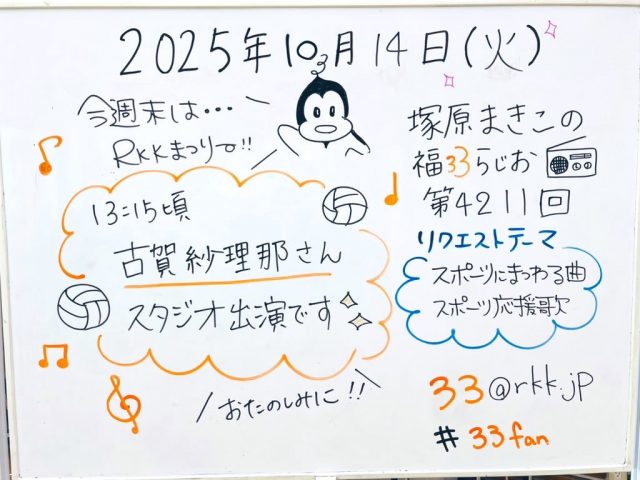 2025年10月14日(火)
今週末は・・・
RKKまつりで!!
13:15頃
古賀紗理那さん
スタジオ出演です
おたのしみに!!
塚原まきこの
福33らじお
第4211回
リクエストテーマ
スポーツにまつわる曲
スポーツ応援歌
33@rkk.jp
#33fan